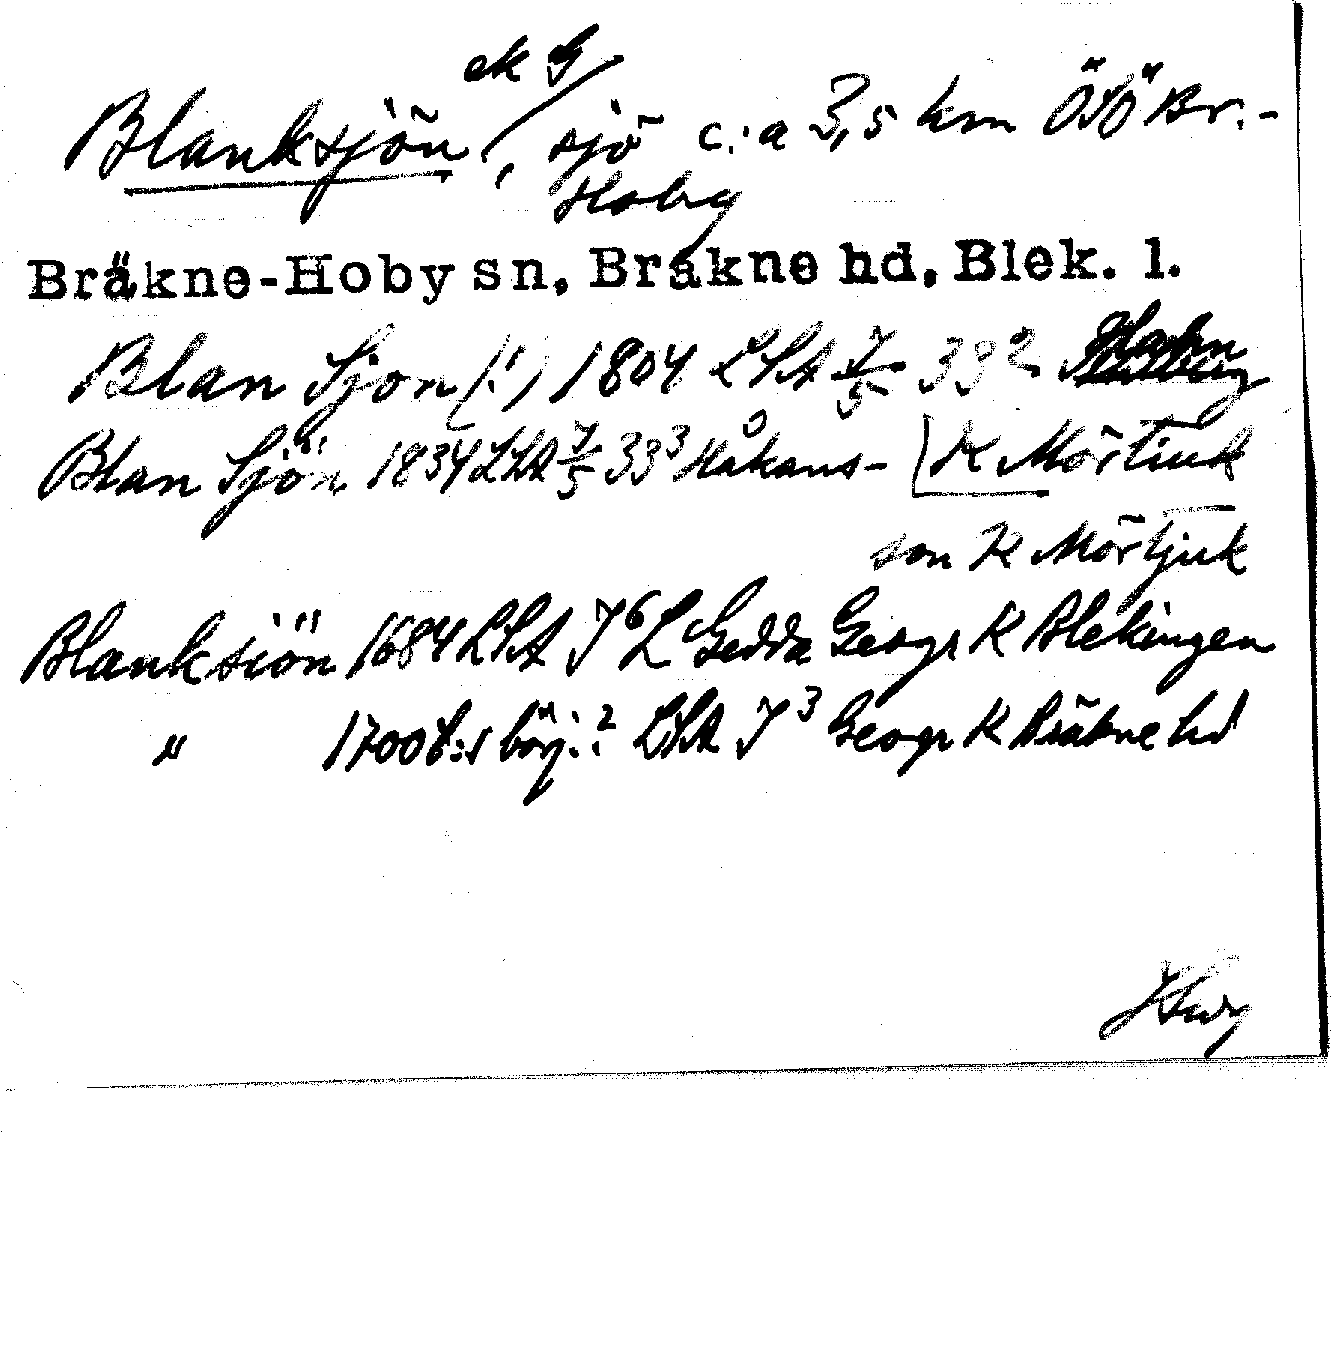 ek G
Blanksjön, sjö c:a 3,5 km ÖSÖ Br.-
Hoby
Bräkne-Hoby sn, Bräkne hd, Blek. l.
Blan Sjon (!) 1804 LSA 7/5 39² Hahn
Blan Sjön 1834 LSA 7/5 33³ Håkans- K Mörtiuk
son K Mörtjuk
Blanksiön 1684 LSA J⁶ L Gedda Geogr K Blekingen
" 1700t:s börj.? LSA J³ Geogr K Bräkne hd